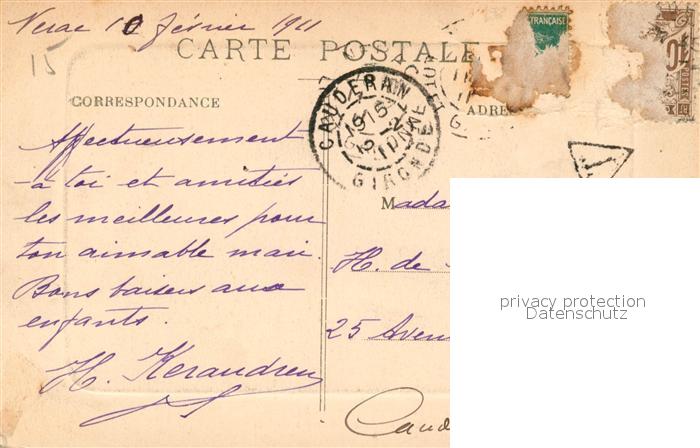 Nerac 10 février 1911
15
CARTE POSTALE
FRANÇAISE
10
POSTES
CORRESPONDANCE
ADRE
CAUDERAN
GIRONDE
T
Affectueusement
à toi et amitiés
les meilleures pour
ton aimable mari.
Bons baisers aux
enfants.
H. Kerandren
Mada
H. de
25 Aven
Caud
privacy protection
Datenschutz